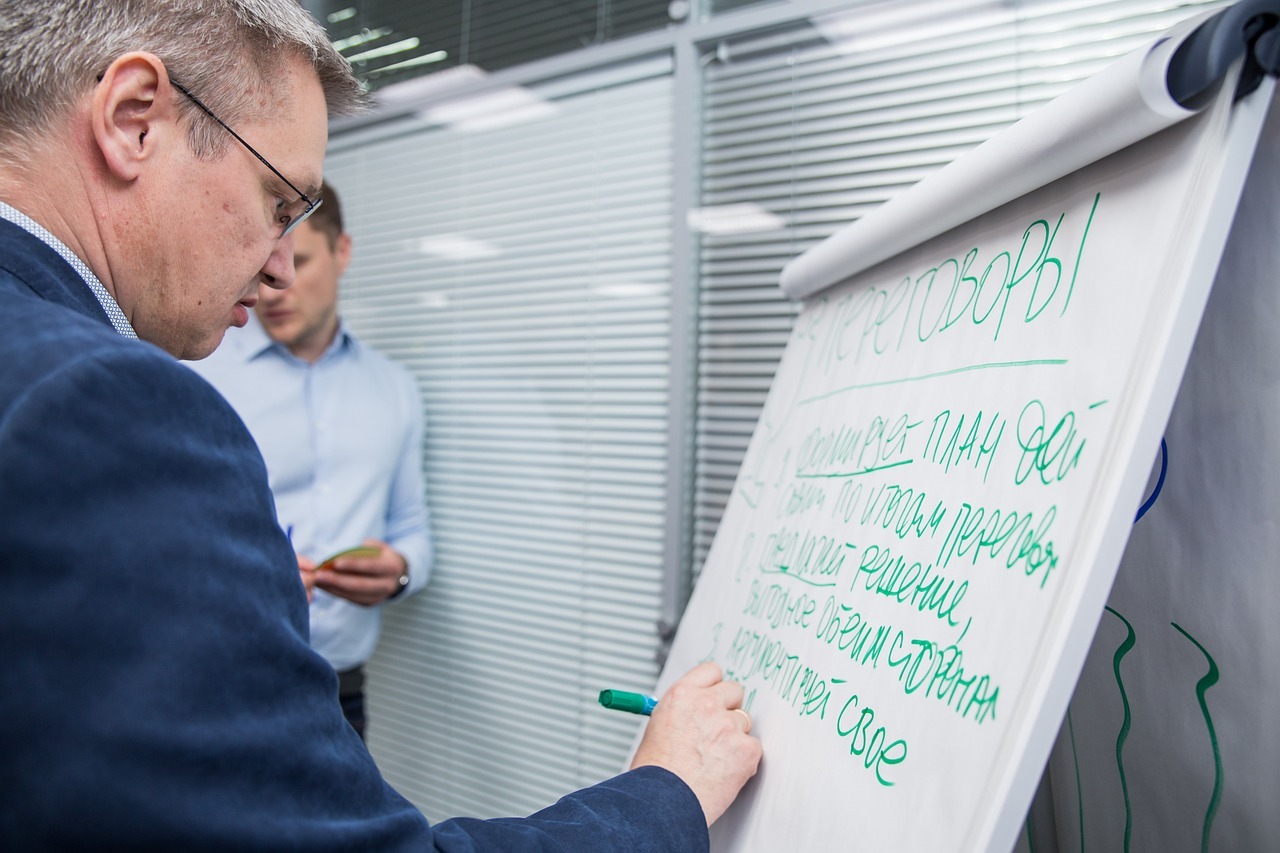 ПЕРЕГОВОРЫ
1. Формирует ПЛАН дей
ствий по итогам переговор
2. Предлагает решение,
выгодное обеим сторонам
3. Аргументирует свое